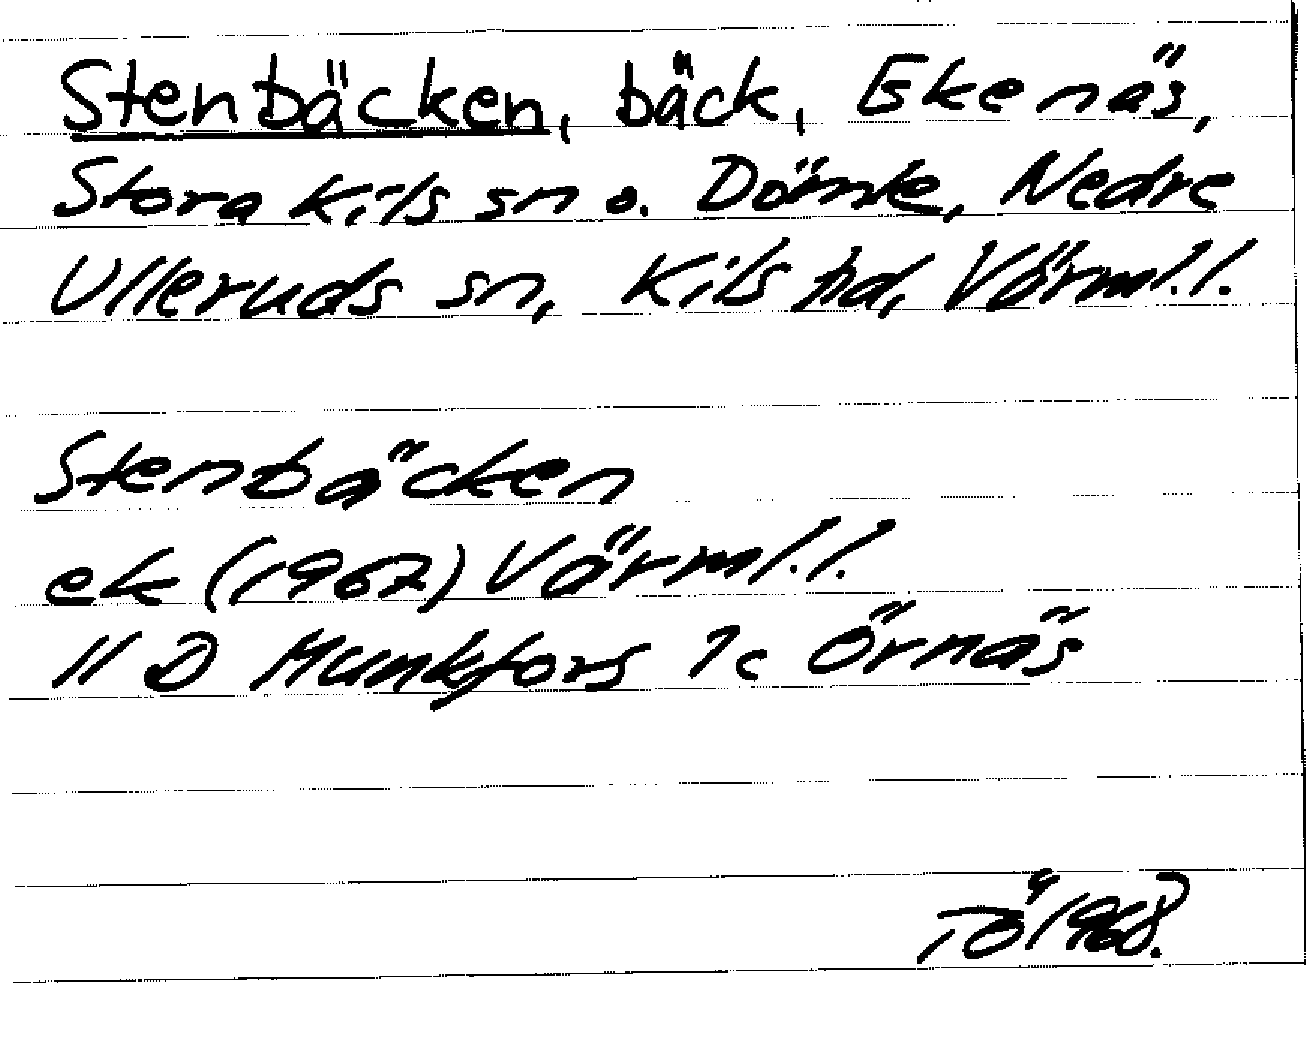 Stenbäcken, bäck, Ekenäs,
Stora Kils sn o. Dömle, Nedre
Ulleruds sn, Kils hd, Värml.l.
Stenbäcken
ek (1967) Värml.l.
11 D Munkfors 1c Örnäs
TÖ 1968.